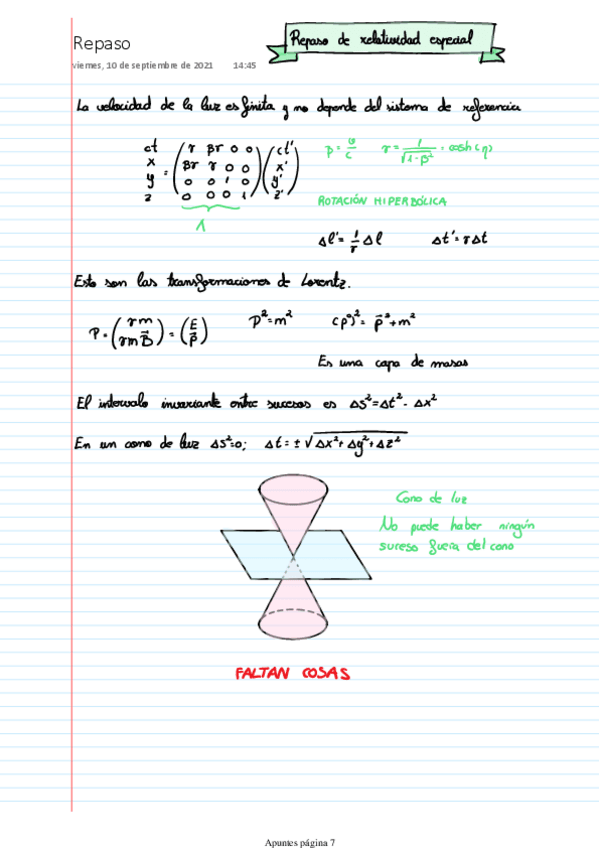 Repaso
viernes, 10 de septiembre de 2021 14:45
Repaso de relatividad especial
La velocidad de la luz es finita y no depende del sistema de referencia
ct x y z = (γ βγ 0 0; βγ γ 0 0; 0 0 1 0; 0 0 0 1) (ct' x' y' z')
Λ
β = v/c γ = 1/√(1-β²) = cosh(η)
ROTACIÓN HIPERBÓLICA
Δl' = 1/γ Δl Δt' = γΔt
Esto son las transformaciones de Lorentz.
P = (γm; γmβ⃗) = (E; p⃗) p² = m² (p⁰)² = p⃗² + m²
Es una capa de masas
El intervalo invariante entre sucesos es Δs² = Δt² - Δx²
En un cono de luz Δs²=0; Δt = ± √(Δx² + Δy² + Δz²)
Cono de luz
No puede haber ningún
suceso fuera del cono
FALTAN COSAS
Apuntes página 7